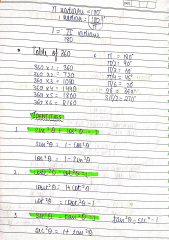 π radians = 180°
1 radian = [180/π]°
1° = π/180 radians
Table of 360
360 x 1 = 360
360 x 2 = 720
360 x 3 = 1080
360 x 4 = 1440
360 x 5 = 1800
360 x 6 = 2160
π = 180°
π/2 = 90°
π/3 = 60°
π/4 = 45°
π/6 = 30°
2π = 360°
3π/2 = 270°
Identities
1. sin²θ + cos²θ = 1
sin²θ = 1 - cos²θ
cos²θ = 1 - sin²θ
2. cosec²θ - cot²θ = 1
cosec²θ = 1 + cot²θ
cot²θ = cosec²θ - 1
3. sec²θ - tan²θ = 1
tan²θ = sec² - 1
sec²θ = 1 + tan²θ